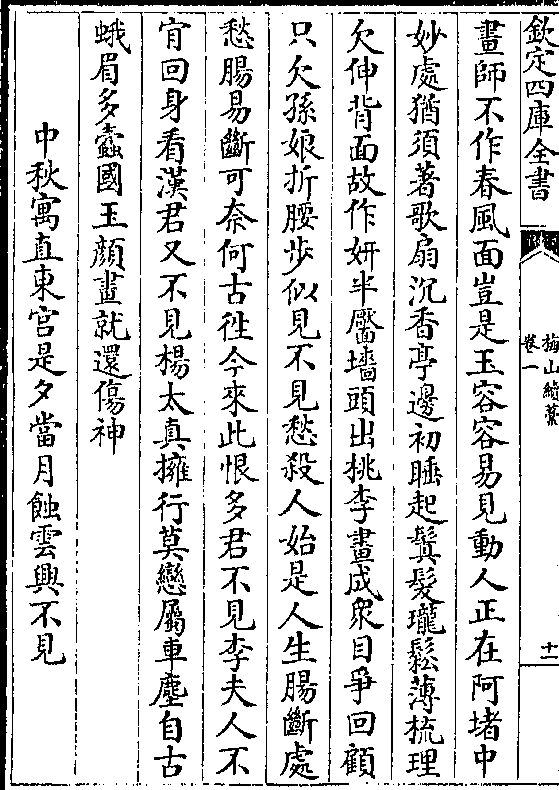 欽定四庫全書
梅山續藁
卷一
十一
畫師不作春風面豈是玉容容易見動人正在阿堵中
妙處猶須著歌扇沉香亭邊初睡起鬒髮瓏鬆薄梳理
欠伸背面故作妍半靨墻頭出桃李畫成衆目爭回顧
只欠孫娘折腰步似見不見愁殺人始是人生腸斷處
愁腸易斷可奈何古徃今來此恨多君不見李夫人不
肎回身看漢君又不見楊太真擁行莫戀屬車塵自古
蛾眉多蠧國玉顔畫就還傷神
中秋寓直東宫是夕當月蝕雲興不見